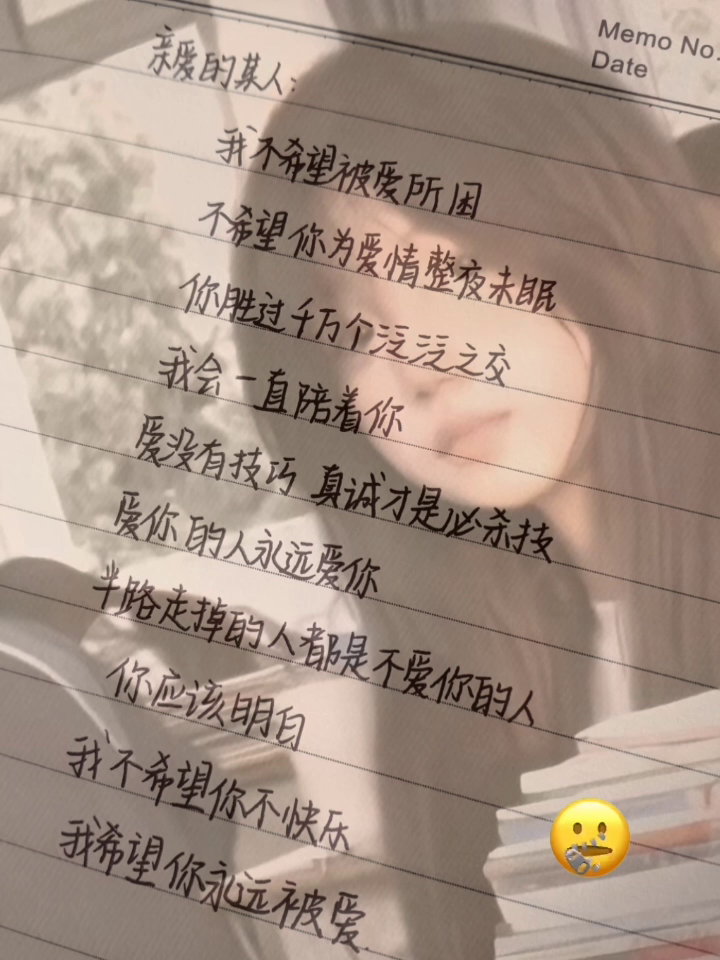 Memo No.
Date
亲爱的某人：
我不希望被爱所困
不希望你为爱情整夜未眠
你胜过千万个泛泛之交
我会一直陪着你
爱没有技巧 真诚才是必杀技
爱你的人永远爱你
半路走掉的人都是不爱你的人
你应该明白
我不希望你不快乐
我希望你永远被爱.